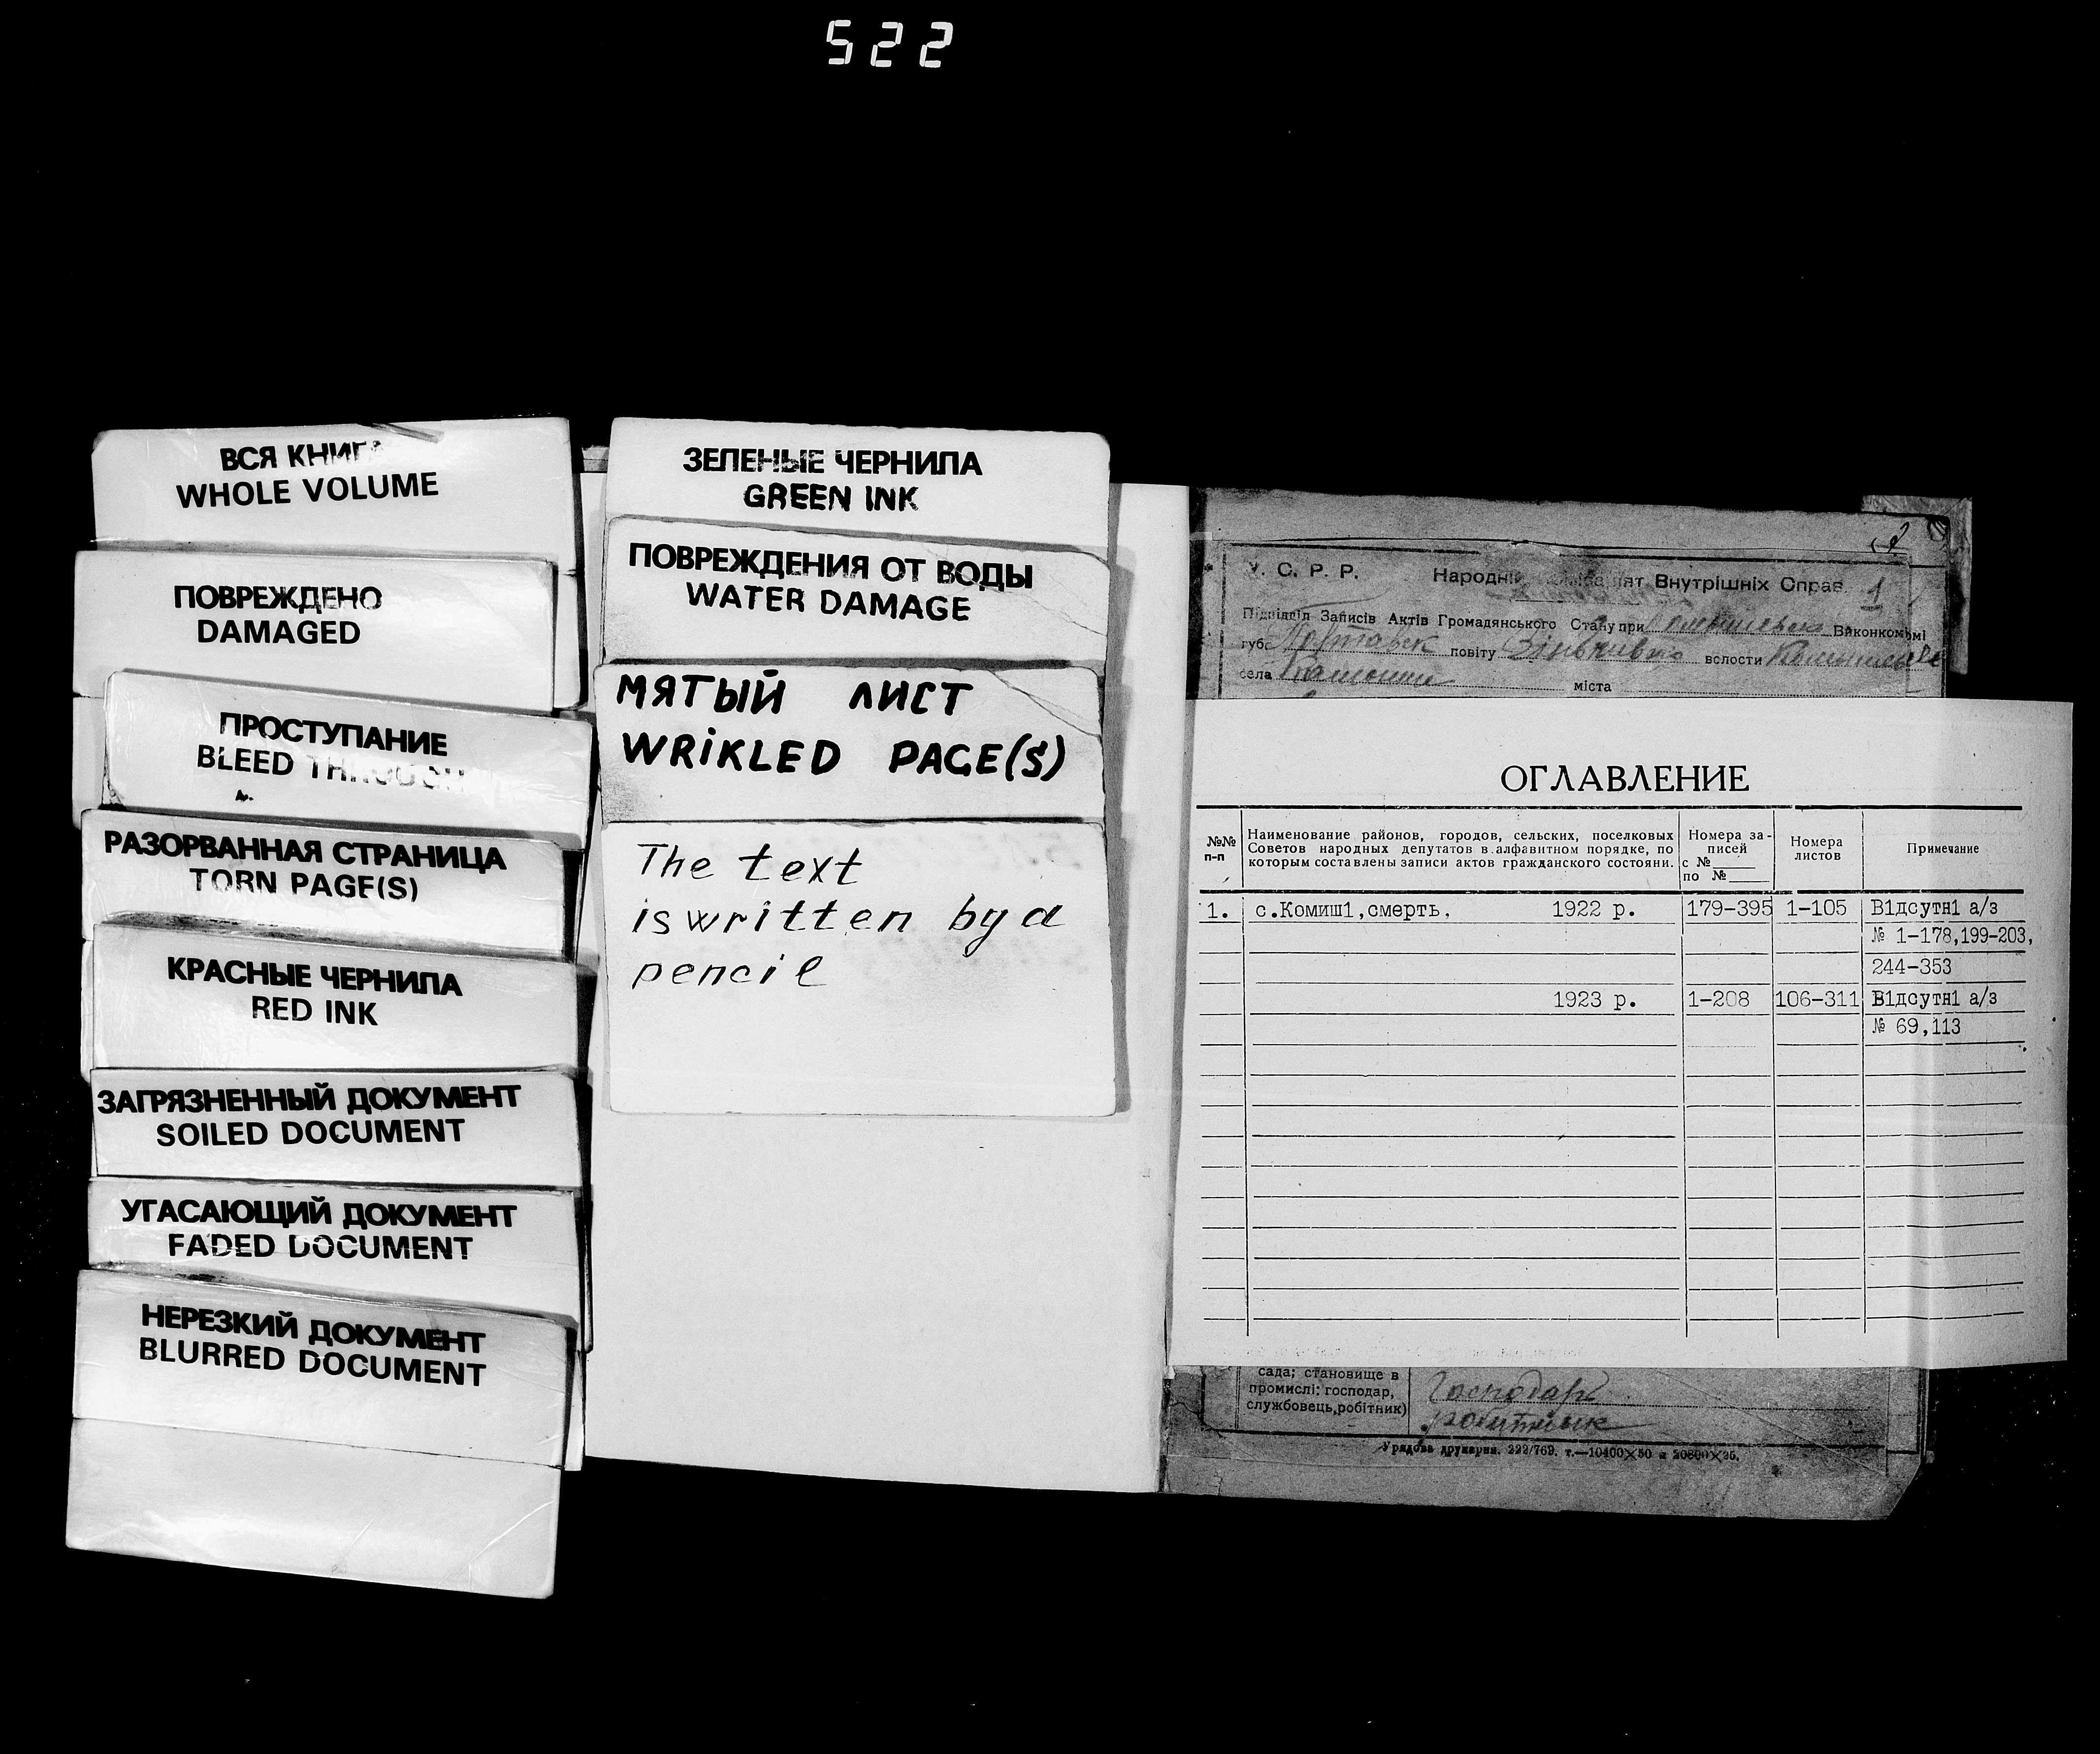 522
ВСЯ КНИГА
WHOLE VOLUME
ПОВРЕЖДЕНО
DAMAGED
ПРОСТУПАНИЕ
BLEED THROUGH
РАЗОРВАННАЯ СТРАНИЦА
TORN PAGE(S)
КРАСНЫЕ ЧЕРНИЛА
RED INK
ЗАГРЯЗНЕННЫЙ ДОКУМЕНТ
SOILED DOCUMENT
УГАСАЮЩИЙ ДОКУМЕНТ
FADED DOCUMENT
НЕРЕЗКИЙ ДОКУМЕНТ
BLURRED DOCUMENT
ЗЕЛЕНЫЕ ЧЕРНИЛА
GREEN INK
ПОВРЕЖДЕНИЯ ОТ ВОДЫ
WATER DAMAGE
МЯТЫЙ ЛИСТ
WRIKLED PAGE(S)
The text
is written by a
pencil
У. С. Р. Р. Внутрішніх Справ. 1
Підвідділ Записів Актів Громадянського Стану при Виконкомі
губ. Полтавск повіту Зіньківськ волости
села міста
ОГЛАВЛЕНИЕ
№№ п-п Наименование районов, городов, сельских, поселковых Советов народных депутатов в алфавитном порядке, по которым составлены записи актов гражданского состояни. Номера записей с № ____ по № ____ Номера листов Примечание
1. с.Комиш1,смерть. 1922 р. 179-395 1-105 В1дсутн1 а/з
№ 1-178,199-203,
244-353
1923 р. 1-208 106-311 В1дсутн1 а/з
№ 69,113
сада; становище в
промислі: господар,
службовець,робітник)
Господарь
робитник
Урядова друкарня. 222/769. т.—10400×50 и 20800×25.